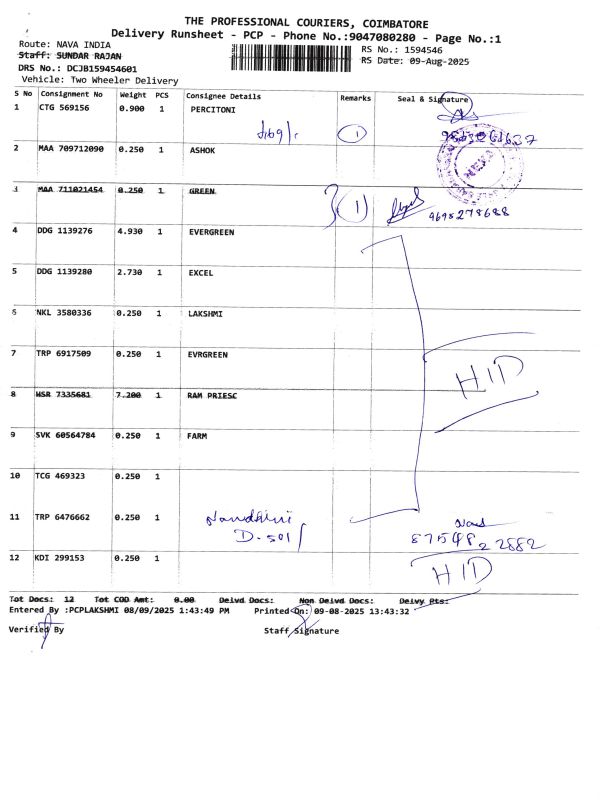 THE PROFESSIONAL COURIERS, COIMBATORE
Delivery Runsheet - PCP - Phone No.:9047080280 - Page No.:1
Route: NAVA INDIA
RS No.: 1594546
Staff: SUNDAR RAJAN
RS Date: 09-Aug-2025
DRS No.: DCJB159454601
Vehicle: Two Wheeler Delivery
S No Consignment No Weight PCS Consignee Details Remarks Seal & Signature
1 CTG 569156 0.900 1 PERCITONI
1
2 MAA 709712090 0.250 1 ASHOK
3 MAA 711021454 0.250 1 GREEN
1
9695278688
4 DDG 1139276 4.930 1 EVERGREEN
5 DDG 1139280 2.730 1 EXCEL
6 NKL 3580336 0.250 1 LAKSHMI
7 TRP 6917509 0.250 1 EVRGREEN
HID
8 HSR 7335681 7.200 1 RAM PRIESC
9 SVK 60564784 0.250 1 FARM
10 TCG 469323 0.250 1
11 TRP 6476662 0.250 1 Nandhini
D-501
87548 22882
12 KDI 299153 0.250 1 HID
Tot Docs: 12 Tot COD Amt: 0.00 Delvd Docs: Non Delvd Docs: Delvy Pts:
Entered By :PCPLAKSHMI 08/09/2025 1:43:49 PM Printed On: 09-08-2025 13:43:32
Verified By Staff Signature